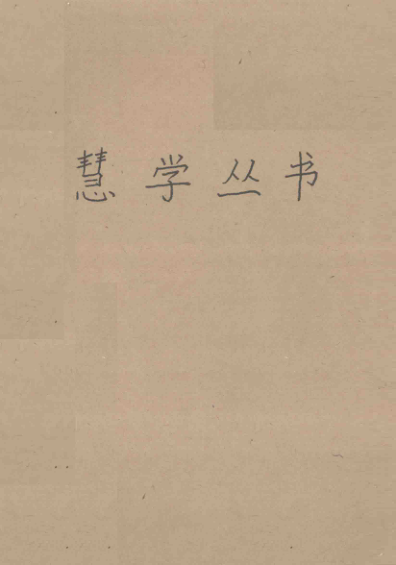 慧学丛书